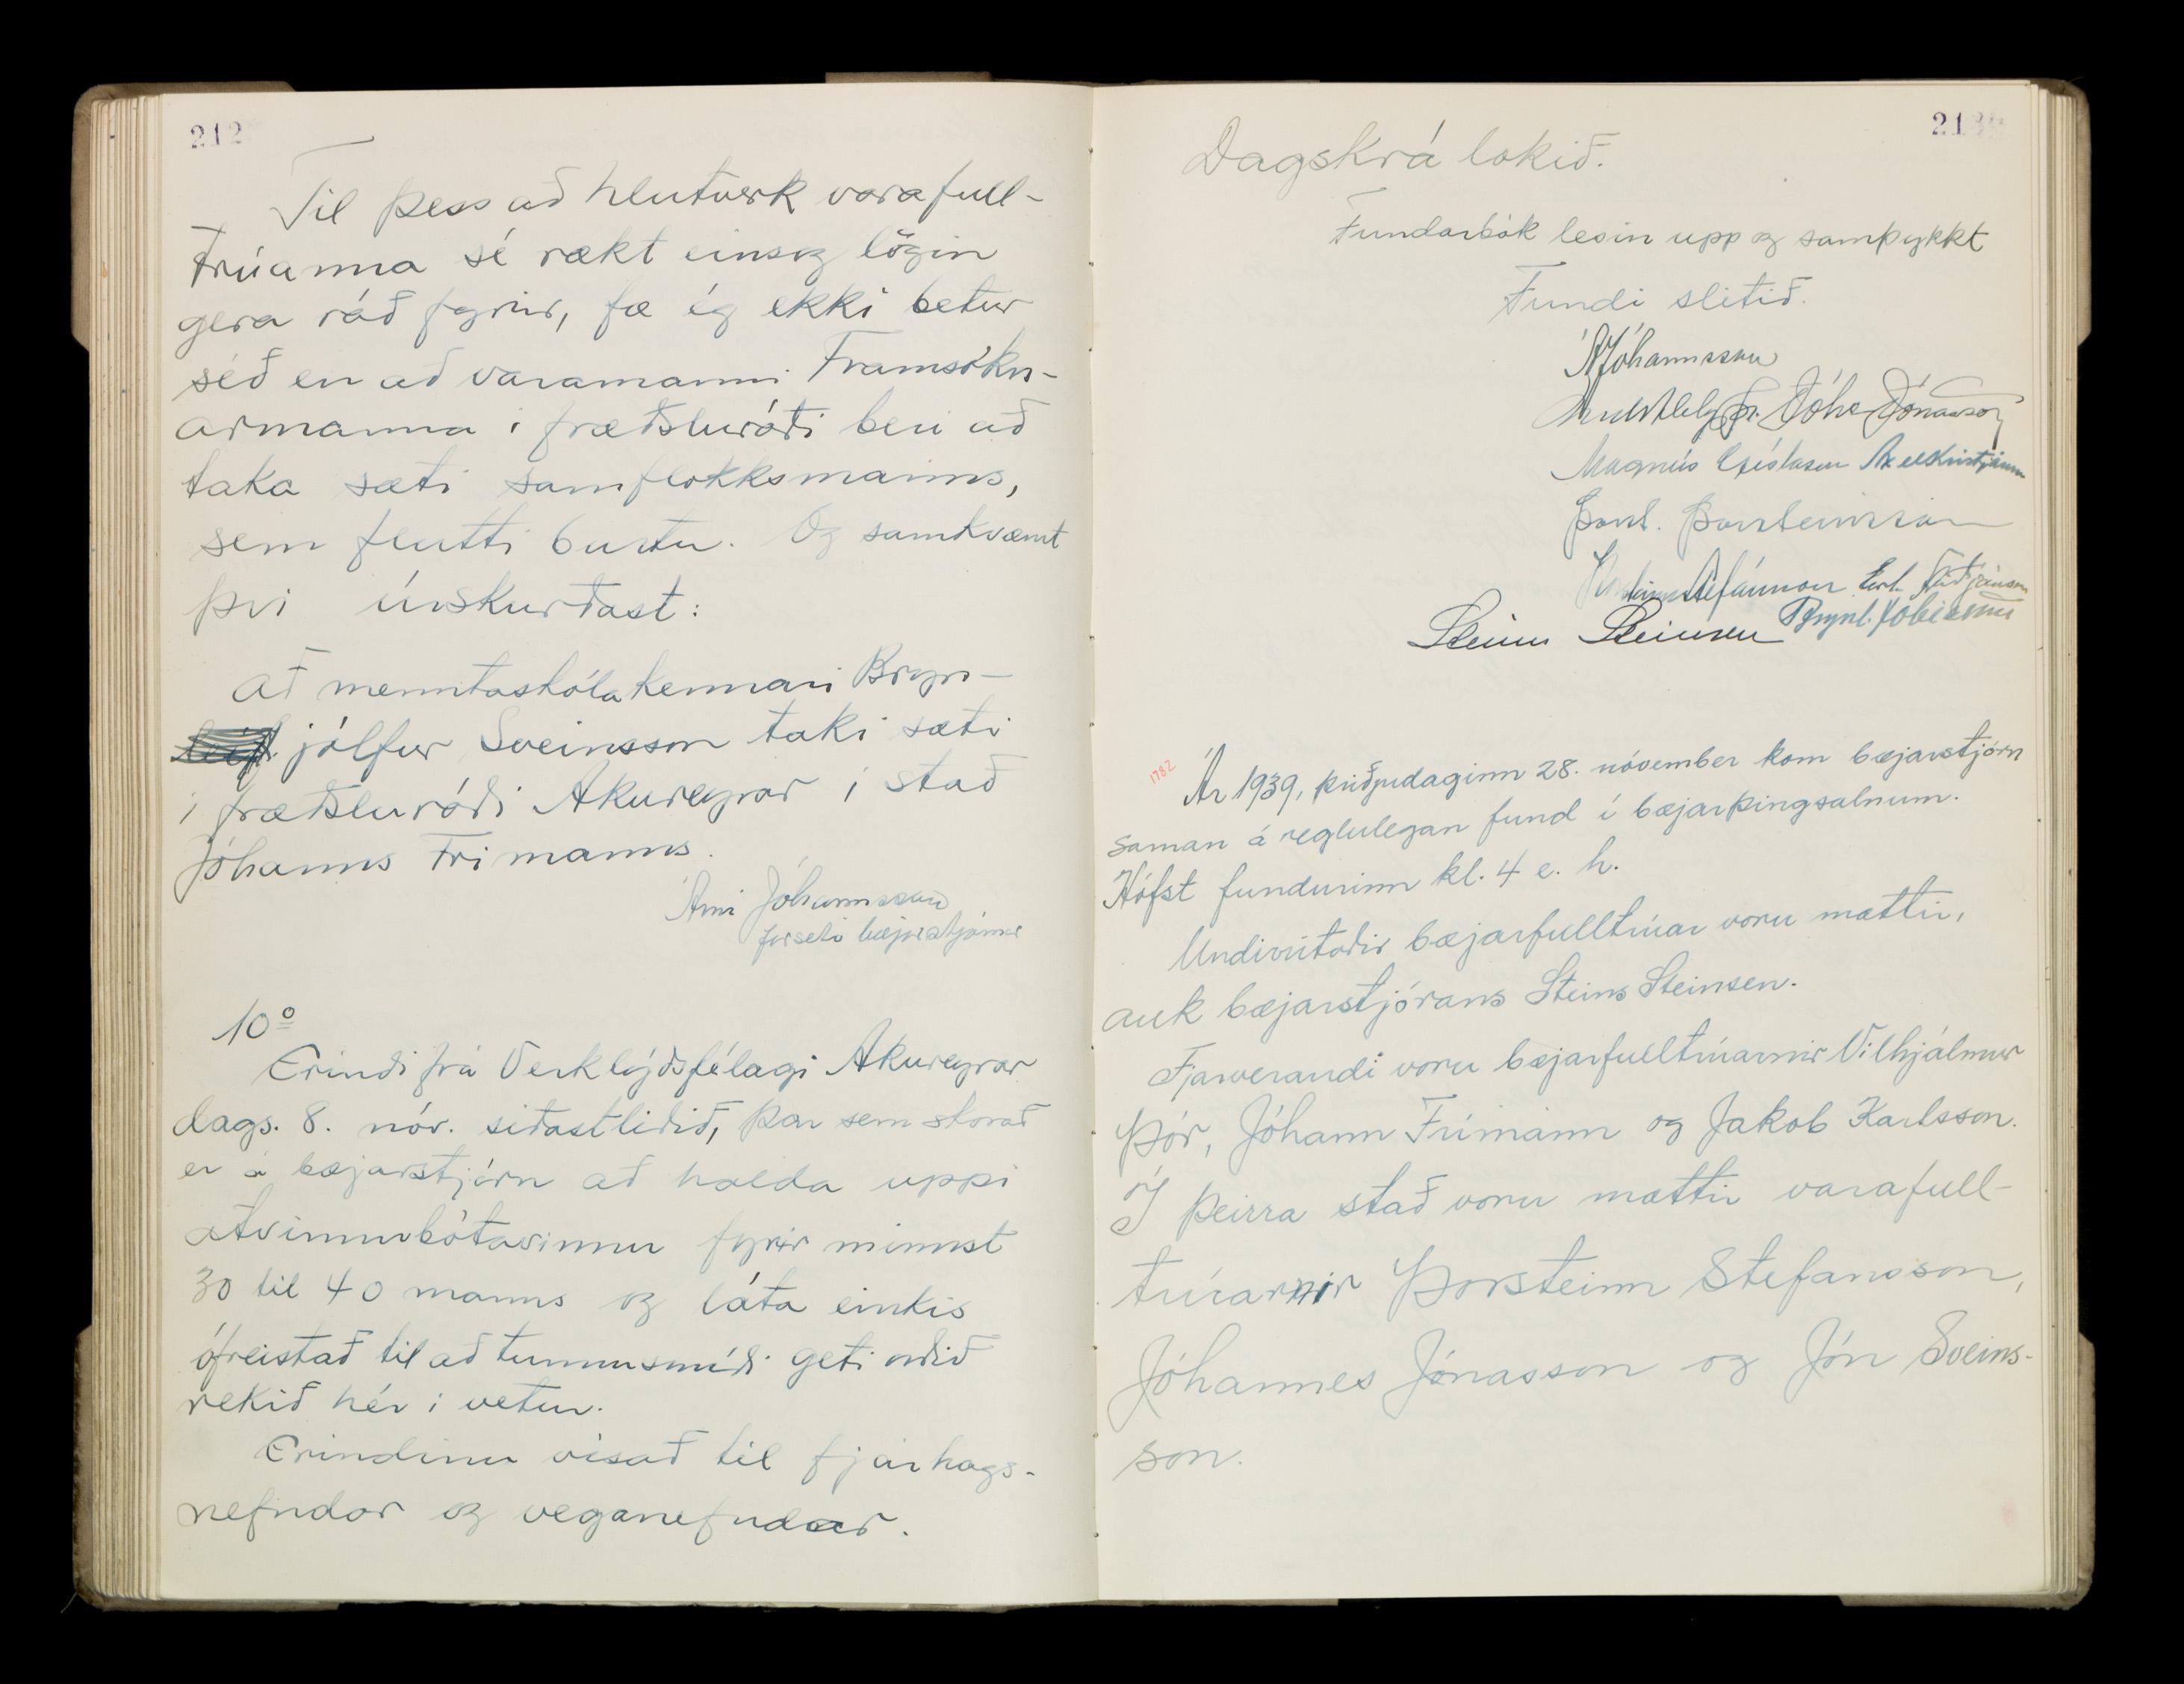 212
Til þess að hlutverk varafull-
trúanna sé rækt einsog lögin
gera ráð fyrir, fæ ég ekki betur
séð en að varamanni Framsókn-
armanna i fræðsluráði beri að
taka sæti samflokksmanns,
sem flutti burtu. Og samkvæmt
þvi úrskurðast:
að menntaskólakennari Bryn-
jólfur Sveinsson taki sæti
i fræðsluráði Akureyrar i stað
Jóhanns Frimanns.
Árni Jóhannsson
forseti bæjarstjórnar
10º
Erindi frá Verklýðsfélagi Akureyrar
dags. 8. nóv. siðastliðið, þar sem skorað
er á bæjarstjórn að halda uppi
atvinnubótavinnu fyrir minnst
30 til 40 manns og láta einkis
ófreistað til að tunnusmiði geti orðið
rekið hér i vetur.
Erindinu visað til fjárhags-
nefndar og veganefndar.
213
Dagskrá lokið.
Fundarbók lesin upp og samþykkt
Fundi slitið.
Á Jóhannsson
Jóhs Jónasson
Magnús Gíslason Axel Kristjánss
Þorst. Þorsteinsson
Stefánsson Erl. Friðjónsson
Steinn Steinsen Brynl. Tobiasson
1782
Ár 1939, þriðjudaginn 28. nóvember kom bæjarstjórn
saman á reglulegan fund í bæjarþingsalnum.
Hófst fundurinn kl. 4 e. h.
Undirritaðir bæjarfulltrúar voru mættir,
auk bæjarstjórans Steins Steinsen.
Fjarverandi voru bæjarfulltrúarnir Vilhjálmur
Þór, Jóhann Frímann og Jakob Karlsson.
Í þeirra stað voru mættir varafull-
trúarnir Þorsteinn Stefansson,
Jóhannes Jónasson og Jón Sveins-
son.